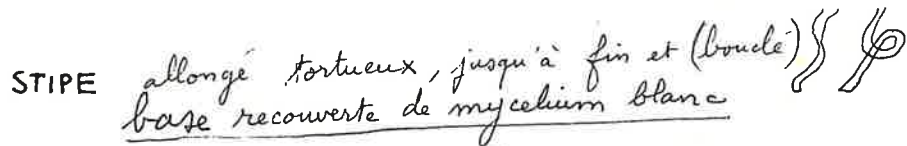 STIPE allongé tortueux, jusqu'à fin et (bouclé)
base recouverte de mycelium blanc